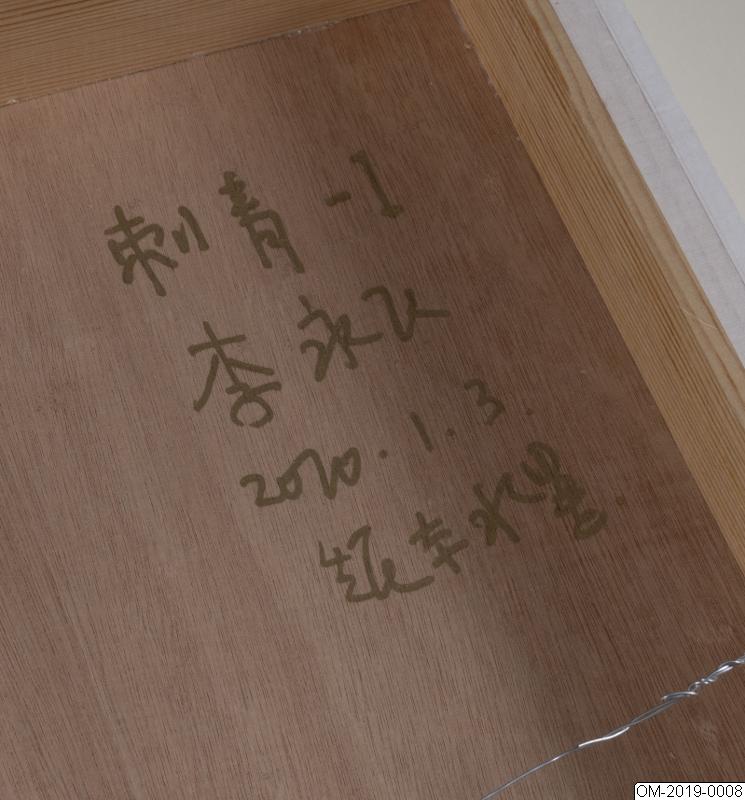 刺青-1
李永飞
2010.1.3.
纸本水墨.
OM-2019-0008